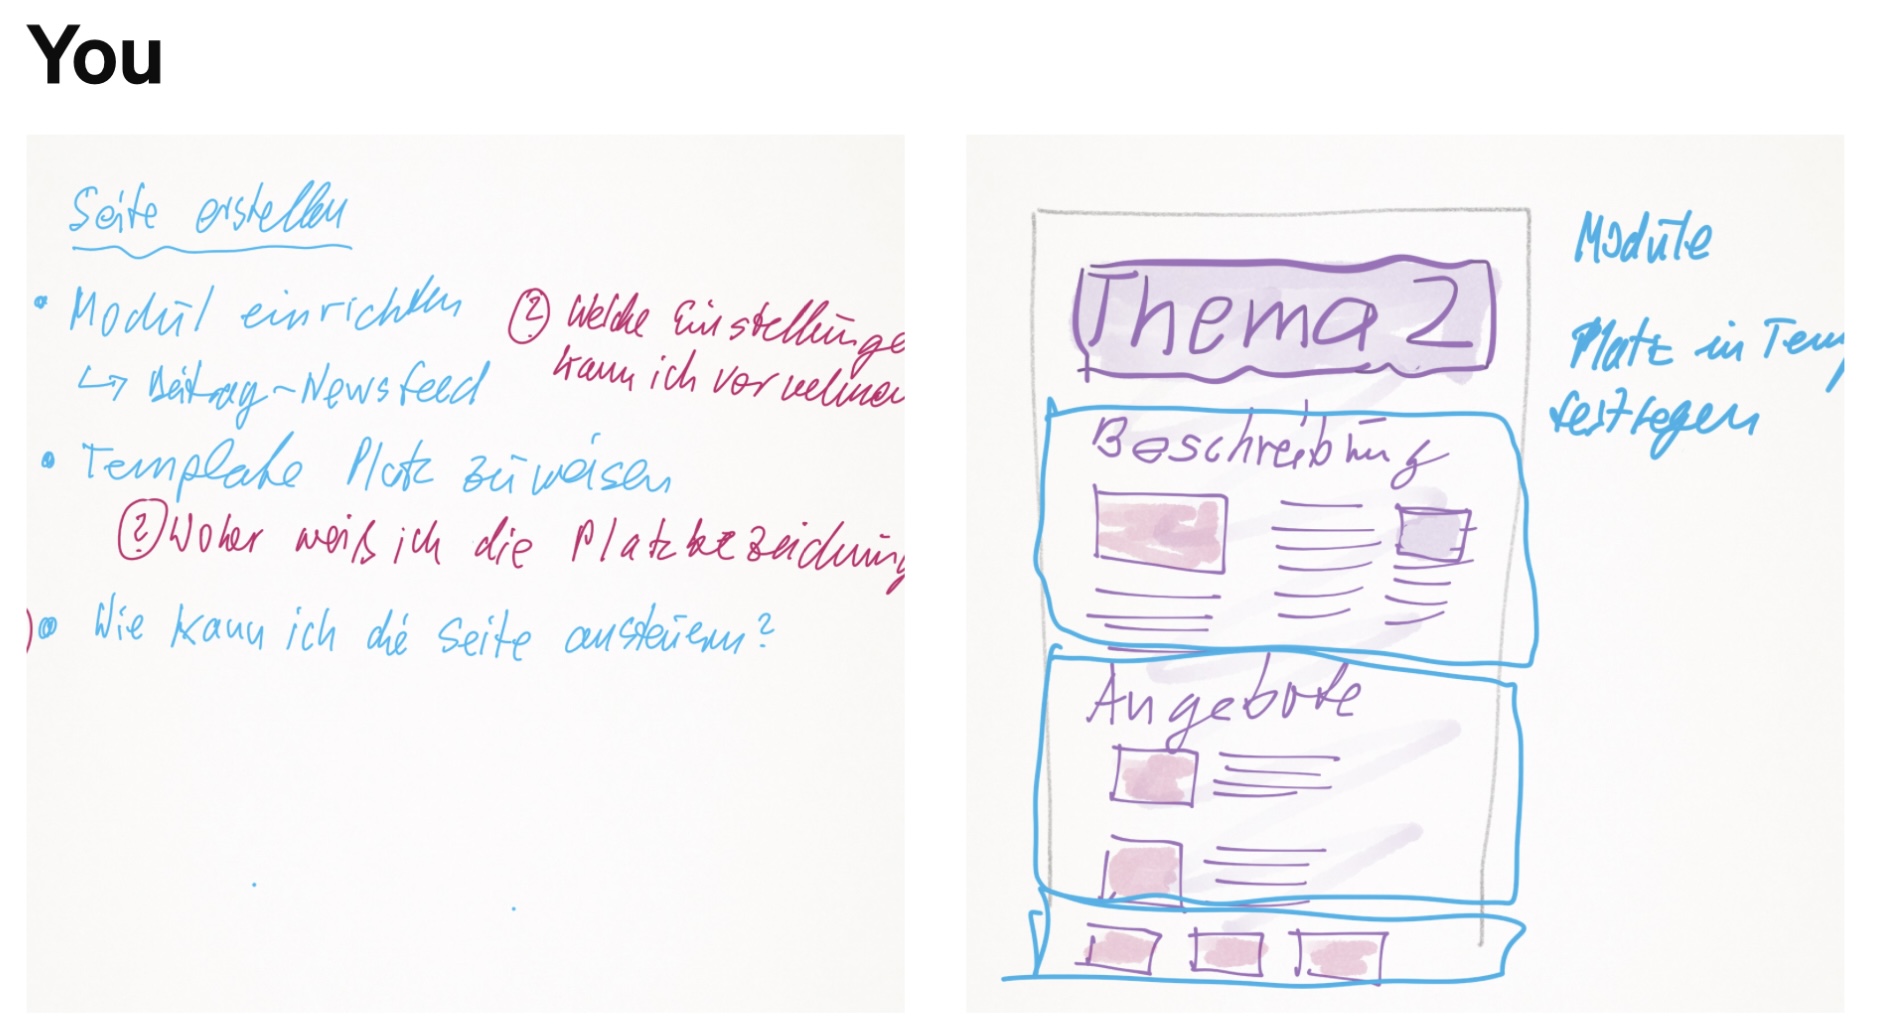 You
Seite erstellen
• Modul einrichten
↳ Beitrag~Newsfeed
? Welche Einstellunge
kann ich vornehmen
• Template Platz zuweisen
? Woher weiß ich die Platzbezeichnung
• Wie kann ich die Seite ansteuern?
Thema 2
Beschreibung
Angebote
Module
Platz in Temp
festlegen